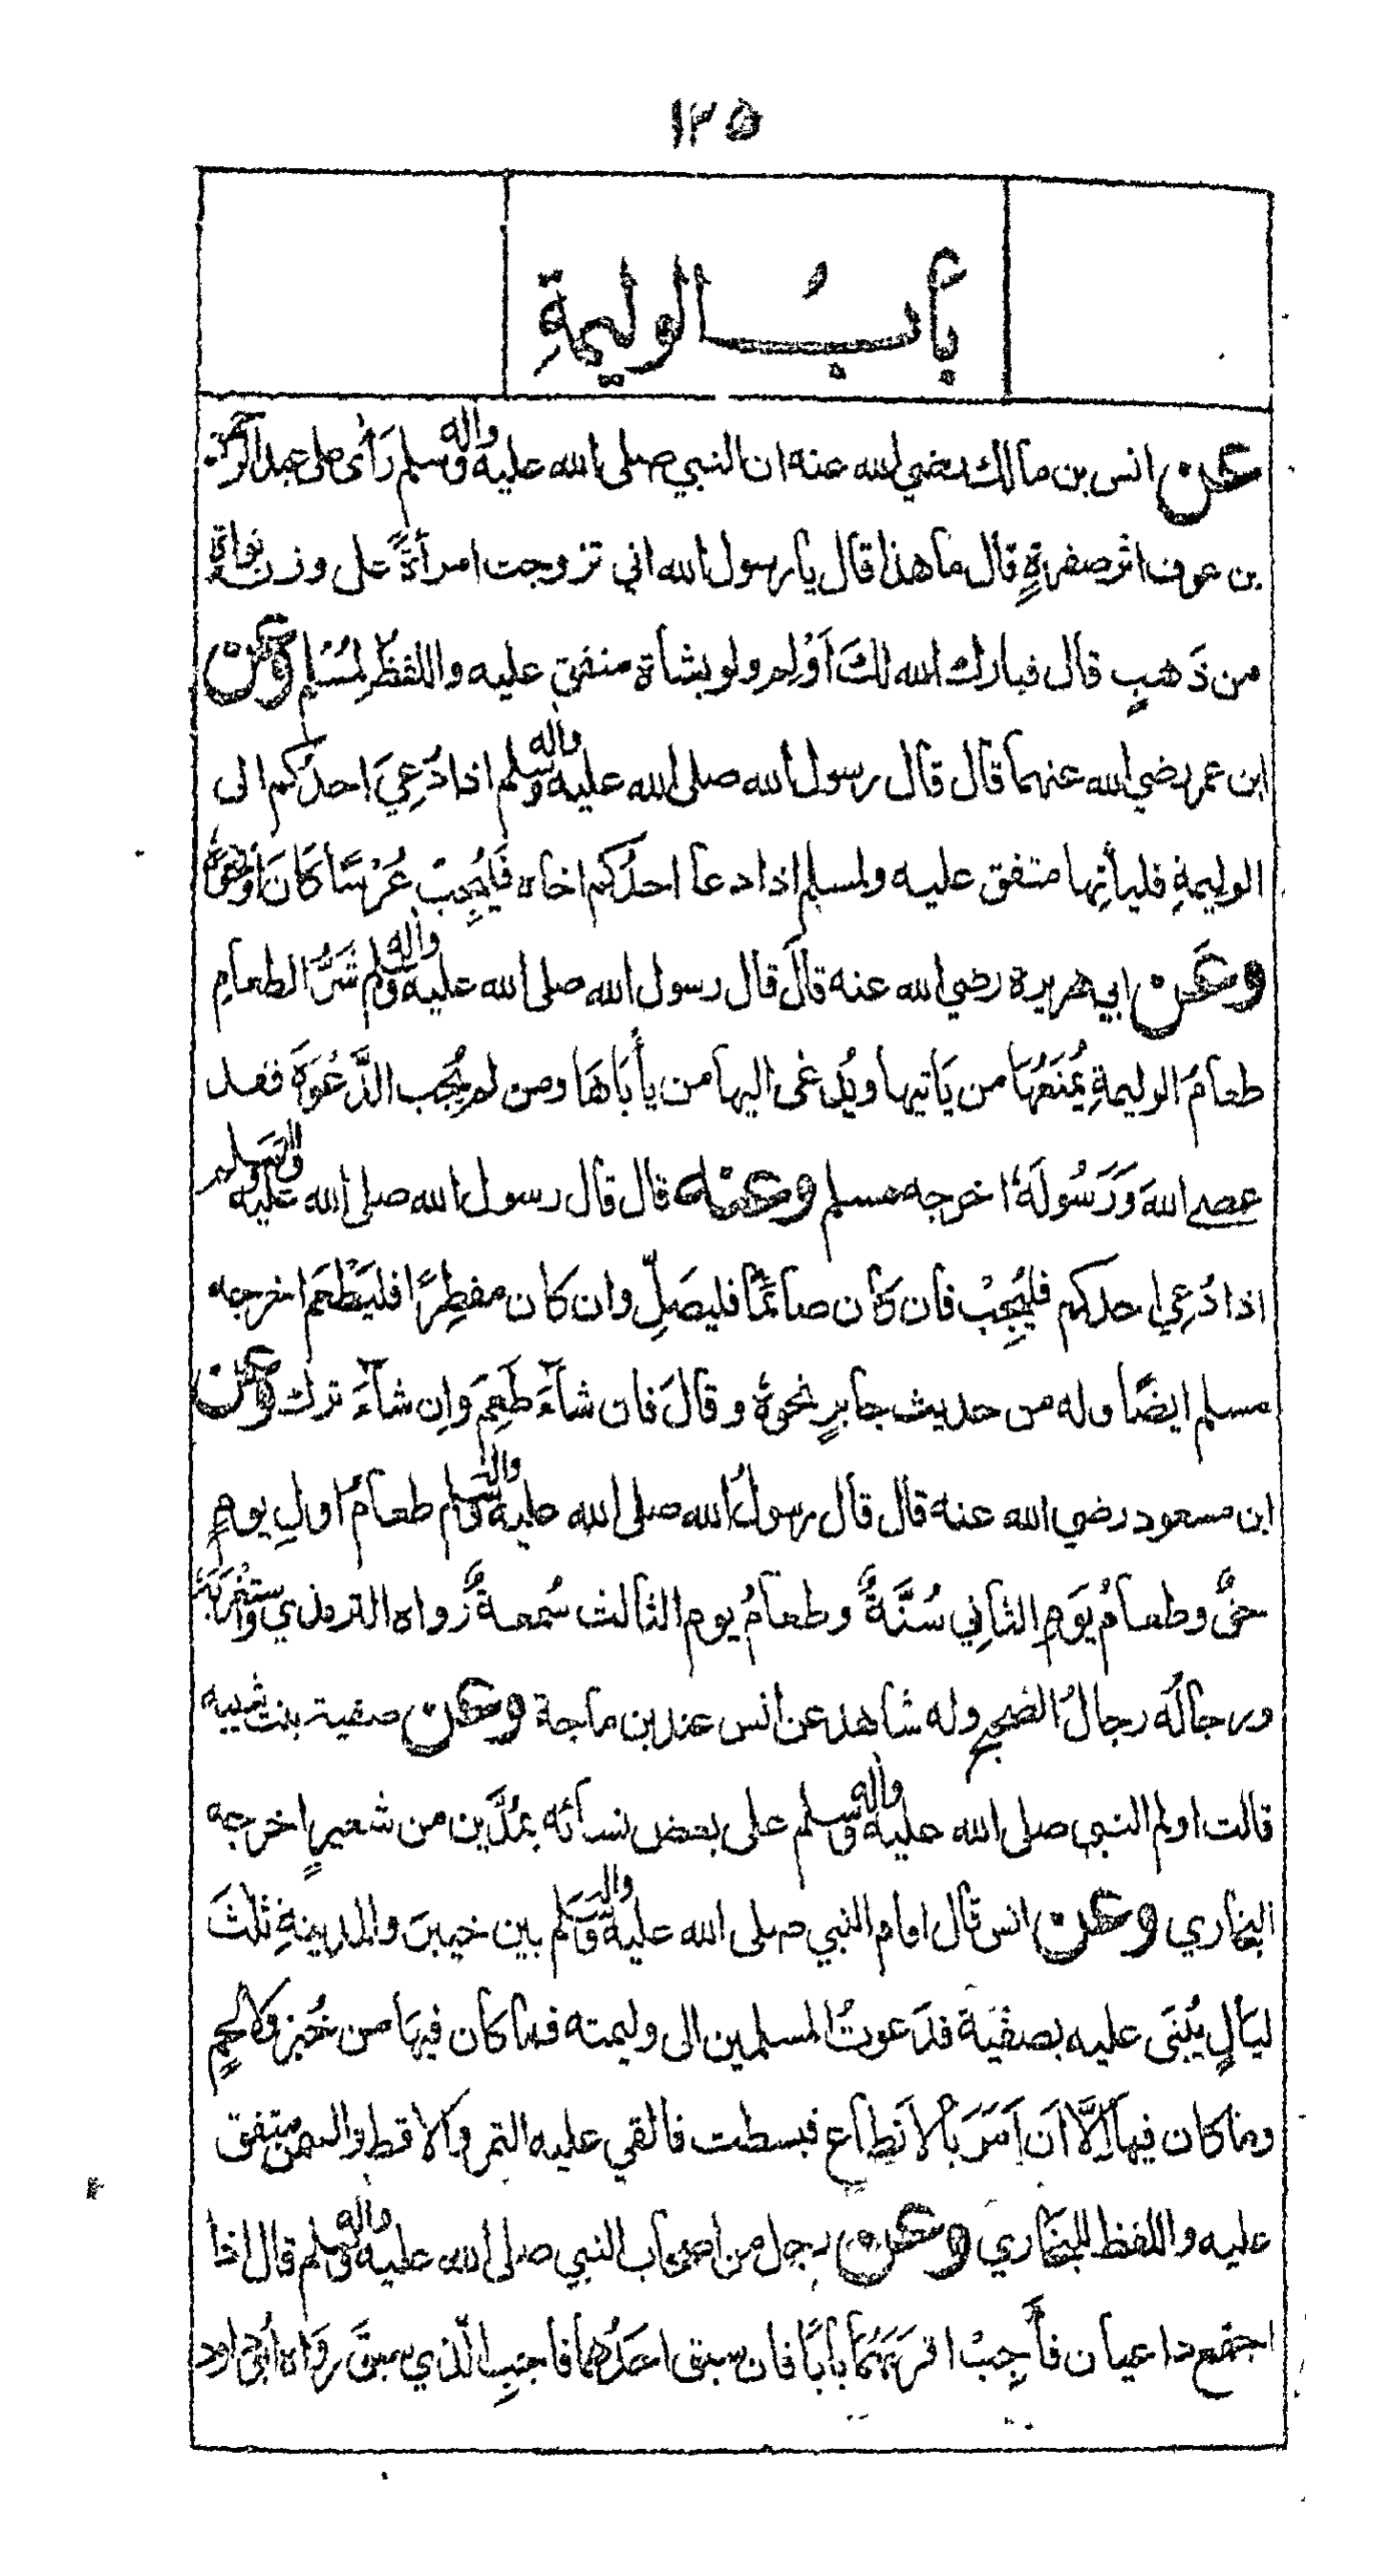 ١٢٥
بابُ الوليمةِ
عن انس بن مالك رضي الله عنه ان النبي صلى الله عليه واله وسلم رَأى على عبد الرحمن
بن عوف اثر صفرةٍ قال ما هذا قال يا رسول الله اني تزوجت امرأةً على وزن نواة
من ذَهبٍ قال فبارك الله لكَ اَوْلِم ولو بشاة متفق عليه واللفظ لمُسْلم وعن
ابن عمر رضي الله عنهما قال قال رسول الله صلى الله عليه واله وسلم اذا دُعِيَ احدكم الى
الوليمةِ فليأتِها متفق عليه ولمسلم اذا دعا احدُكم اخاه فَليُجِبْ عُرْسًا كَانَ اَوْ نحوَهُ
وعن ابي هريرة رضي الله عنه قالَ قال رسول الله صلى الله عليه واله وسلم شَرُّ الطعامِ
طعامُ الوليمةِ يُمنَعُهَا من يَاتيها ويُدعَى اليها من يأبَاهَا ومن لم يُجب الدَّعْوَةَ فقد
عصى اللهَ وَرَسُولَهُ اخرجه مسلم وعنه قال قال رسول الله صلى الله عليه واله وسلم
اذا دُعِي احدكم فليُجِبْ فان كان صائمًا فليصَلِّ وان كان مفطِرًا فليَطْعَم اخرجه
مسلم ايضًا وله من حديث جابرٍ نحوهُ وقالَ فان شآءَ طَعِمَ وَاِن شآءَ ترك وعن
ابن مسعود رضي الله عنه قال قال رسولُ الله صلى الله عليه واله وسلم طعامُ اولِ يومٍ
حقٌّ وطعامُ يَومِ الثانِي سُنَّةٌ وطعامُ يوم الثالث سُمعةٌ رواه الترمذي واستَغْرَبَهُ
ورجالُه رجالُ الصحيح وله شاهد عن انس عند بن ماجة وعن صفية بنت شيبه
قالت اولم النبي صلى الله عليه واله وسلم على بعض نسائه بمُدَّين من شعيرٍ اخرجه
البخاري وعن انس قال اقام النبي صلى الله عليه واله وسلم بين خيبرَ والمدينةِ ثلثَ
ليَالٍ يُبْنَى عليه بصفيَة فدَعوتُ المسلمين الى وليمته فما كان فيهَا من خُبز ولا لحمٍ
وما كان فيها اِلَّا اَن اَمَرَ بالانطاع فبسطت فالقي عليه التمر والاقط والسمن متفق
عليه واللفظ للبخاري وعن رجل من اصحاب النبي صلى الله عليه واله وسلم قال اذا
اجتمع داعيان فأَجِبْ اقرَبَهُمَا بابًا فان سبق احَدُهما فاجبِ الّذي سبقَ رواه ابو داود